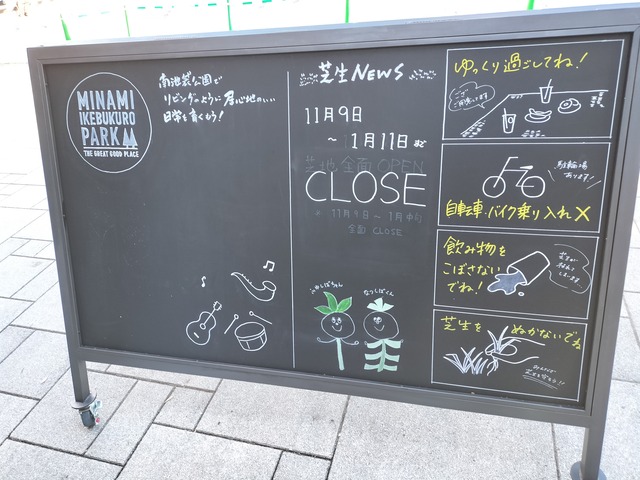 MINAMI
IKEBUKURO
PARK
THE GREAT GOOD PLACE
南池袋公園で
リビングのように居心地のいい
日常を育もう!
芝生NEWS
11月9日
~ 1月11日まで
芝地 全面 OPEN
CLOSE
* 11月9日~1月中旬
全面 CLOSE
ふゆしばちゃん
なつしばくん
ゆっくり過ごしてね!
駐輪場
あります!
自転車・バイク乗り入れ×
飲み物を
こぼさない
でね!
芝生を ぬかないでね